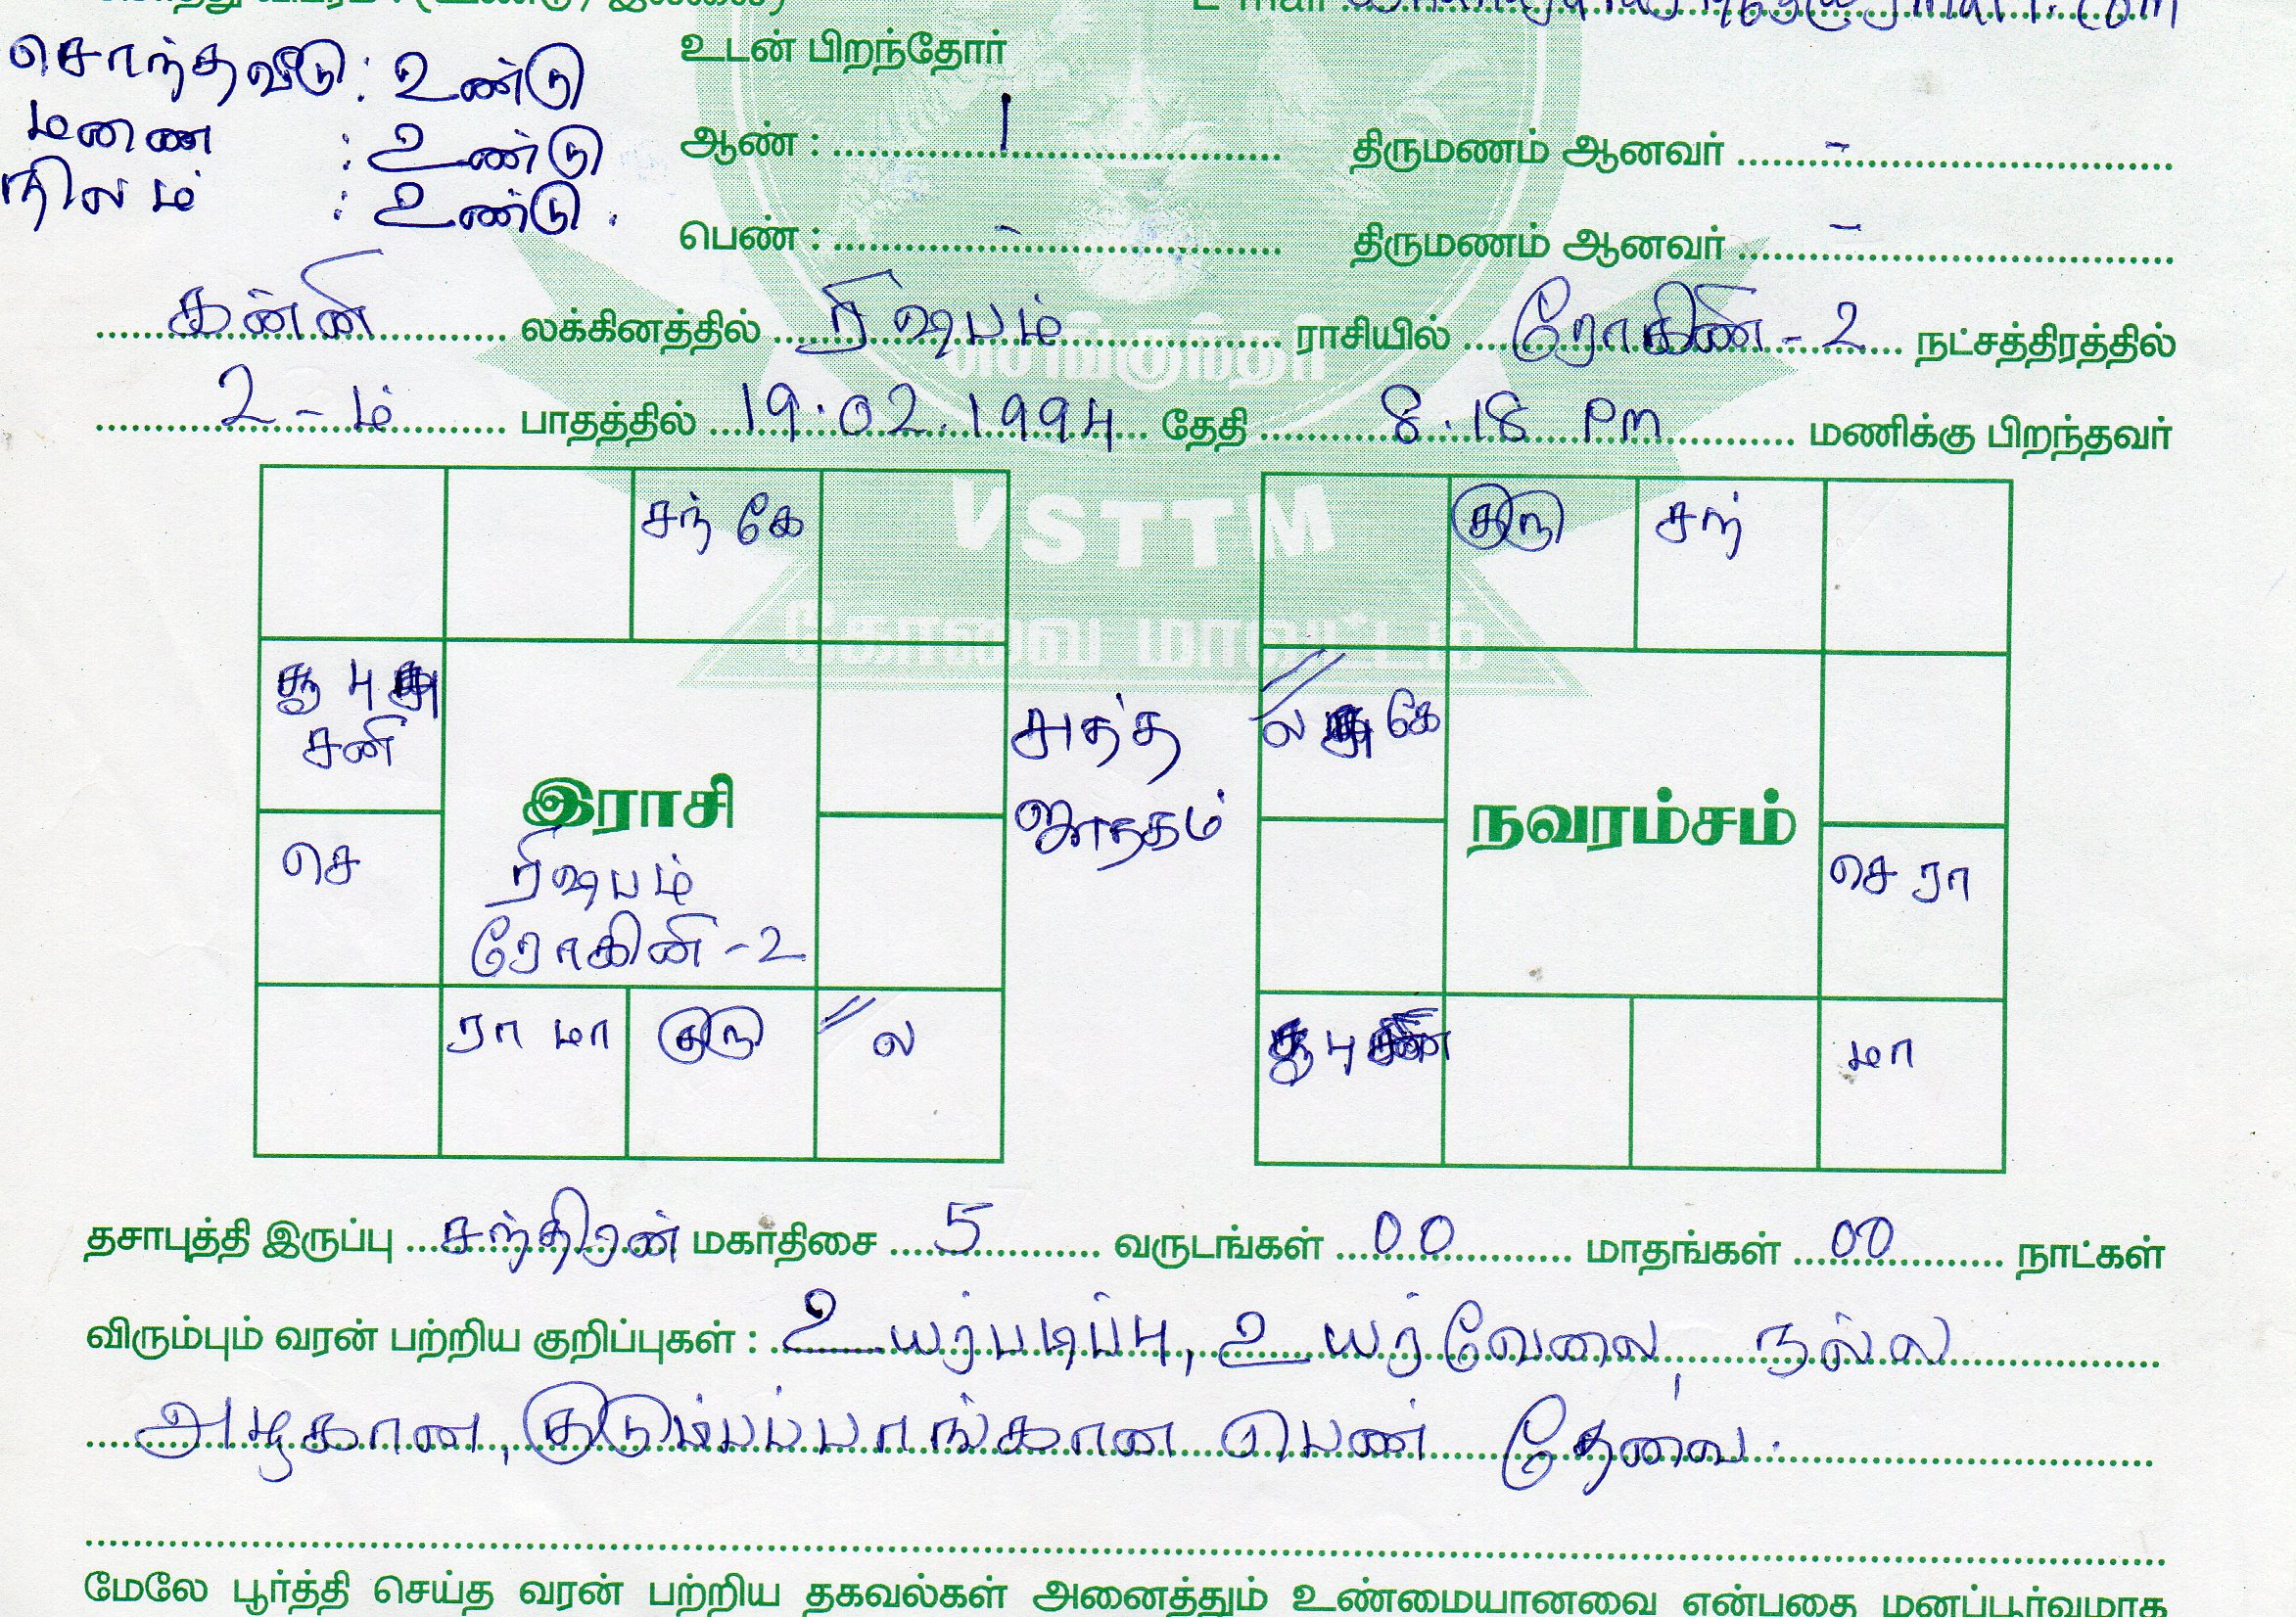 E-mail
சொந்தவீடு : உண்டு
உடன் பிறந்தோர்
மனை : உண்டு
ஆண் : 1 திருமணம் ஆனவர் -
நிலம் : உண்டு.
பெண் : - திருமணம் ஆனவர் -
கன்னி லக்கினத்தில் ரிஷபம் ராசியில் ரோகிணி-2 நட்சத்திரத்தில்
2-ம் பாதத்தில் 19.02.1994 தேதி 8.18 Pm மணிக்கு பிறந்தவர்
செங்குந்தர்
VSTTM
கோவை மாவட்டம்
சந் கே
குரு சந்
சூ பு சு
சனி
சுத்த
ஜாதகம்
ல சு கே
இராசி
நவரம்சம்
செ
ரிஷபம்
ரோகினி-2
செ ரா
ரா மா குரு ல
பு மா
தசாபுத்தி இருப்பு சந்திரன் மகாதிசை 5 வருடங்கள் 00 மாதங்கள் 00 நாட்கள்
விரும்பும் வரன் பற்றிய குறிப்புகள் : உயர்படிப்பு, உயர்வேலை, நல்ல
அழகான, குடும்பப்பாங்கான பெண் தேவை.
மேலே பூர்த்தி செய்த வரன் பற்றிய தகவல்கள் அனைத்தும் உண்மையானவை என்பதை மனப்பூர்வமாக